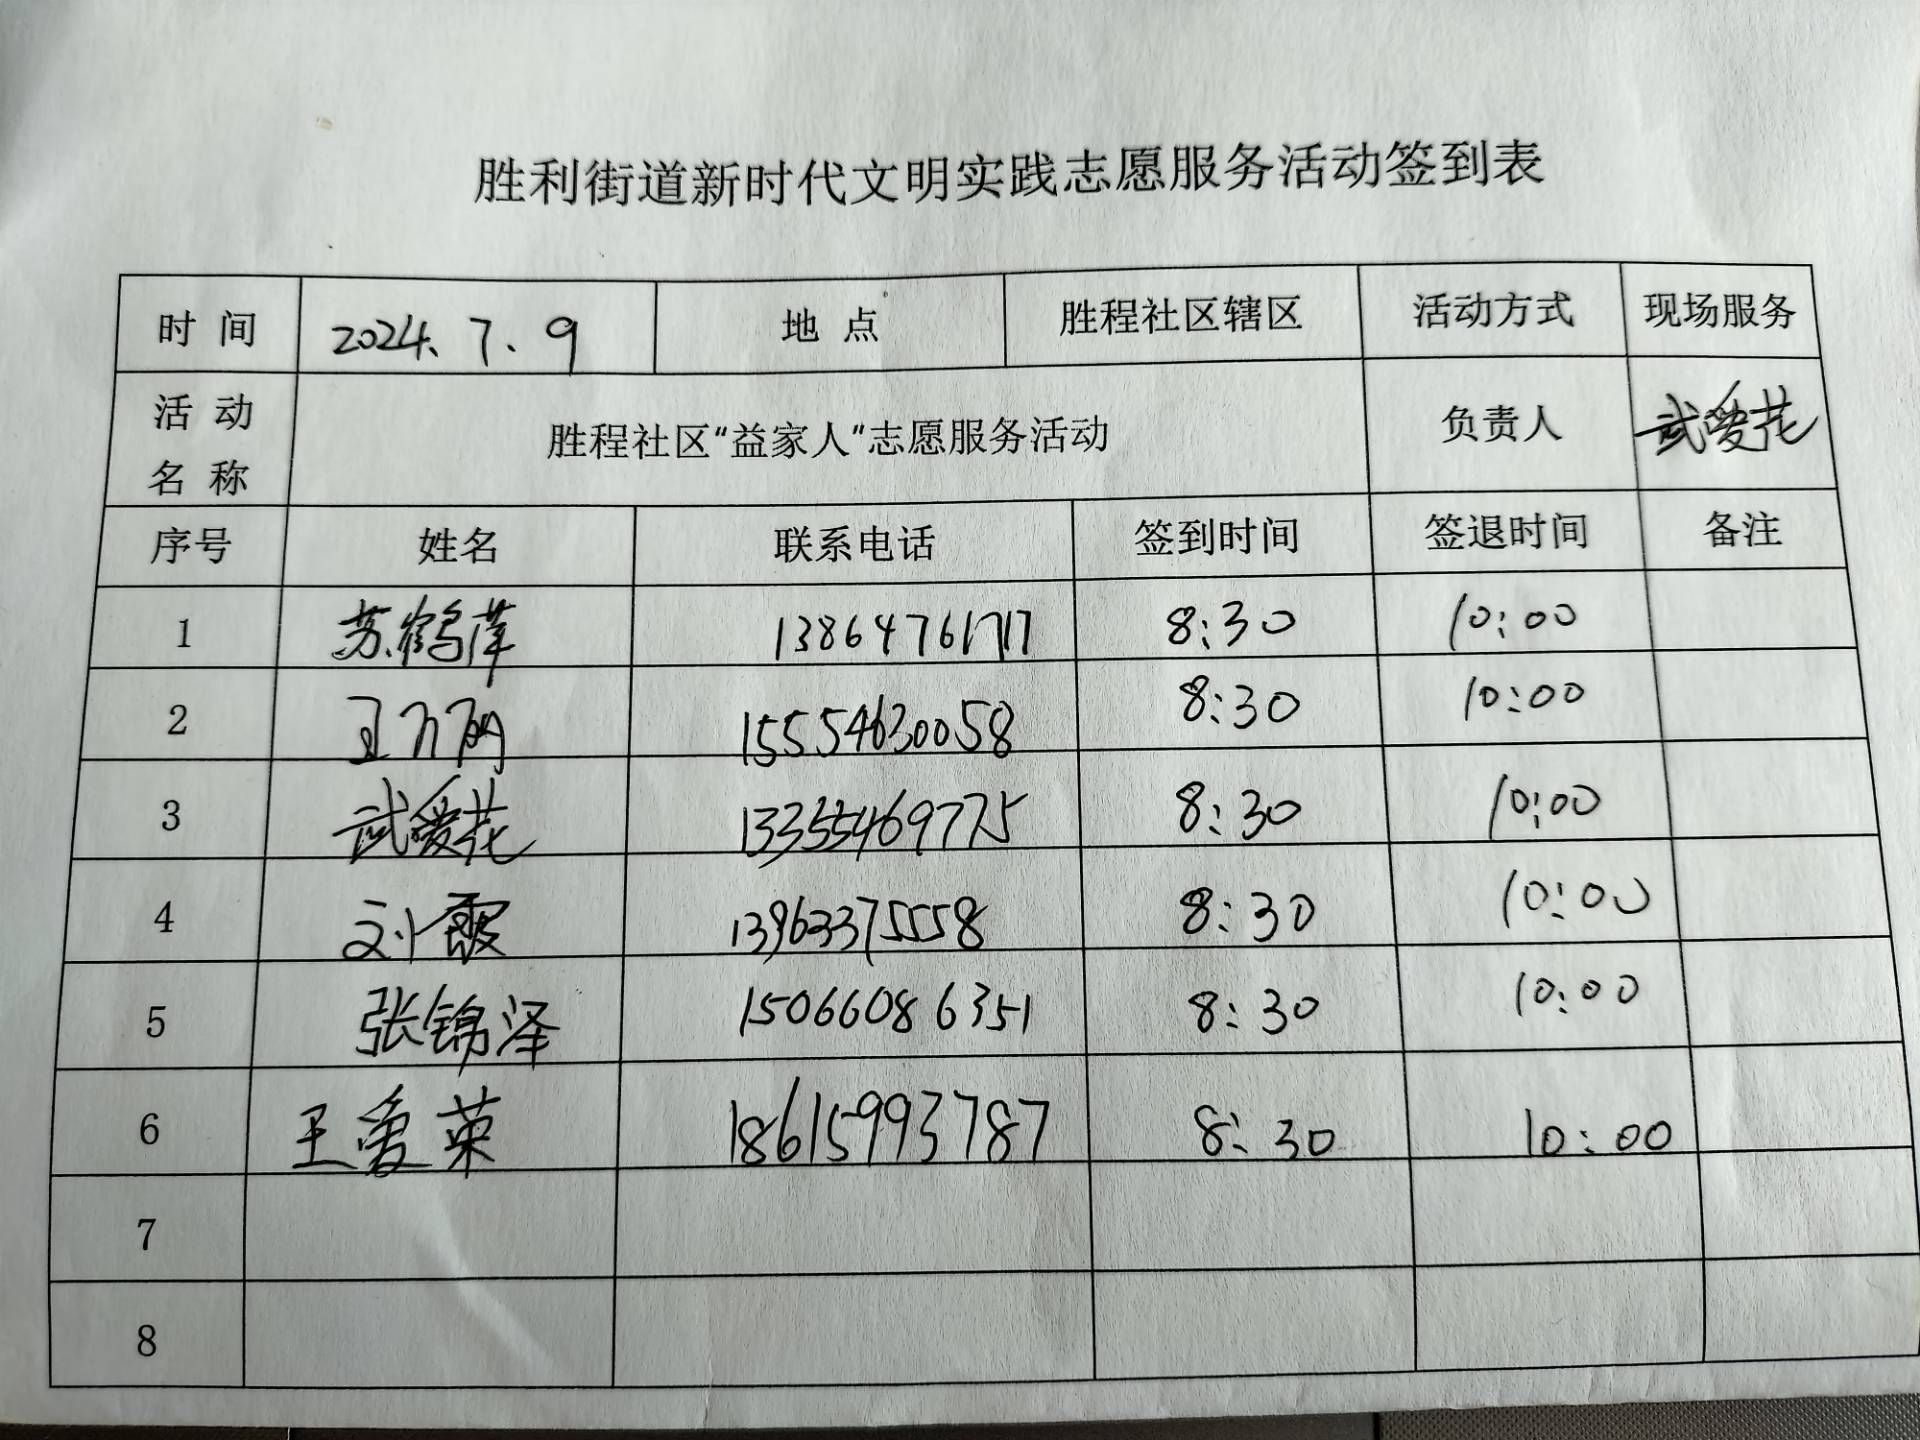 胜利街道新时代文明实践志愿服务活动签到表
时 间 2024、7、9 地 点 胜程社区辖区 活动方式 现场服务
活 动 名 称 胜程社区“益家人”志愿服务活动 负责人 武爱花
序号 姓名 联系电话 签到时间 签退时间 备注
1 苏鹤萍 13864761717 8:30 10:00
2 王 15554630058 8:30 10:00
3 武爱花 13355469775 8:30 10:00
4 刘霞 13963375558 8:30 10:00
5 张锦泽 15066086351 8:30 10:00
6 王爱英 18615993787 8:30 10:00
7
8